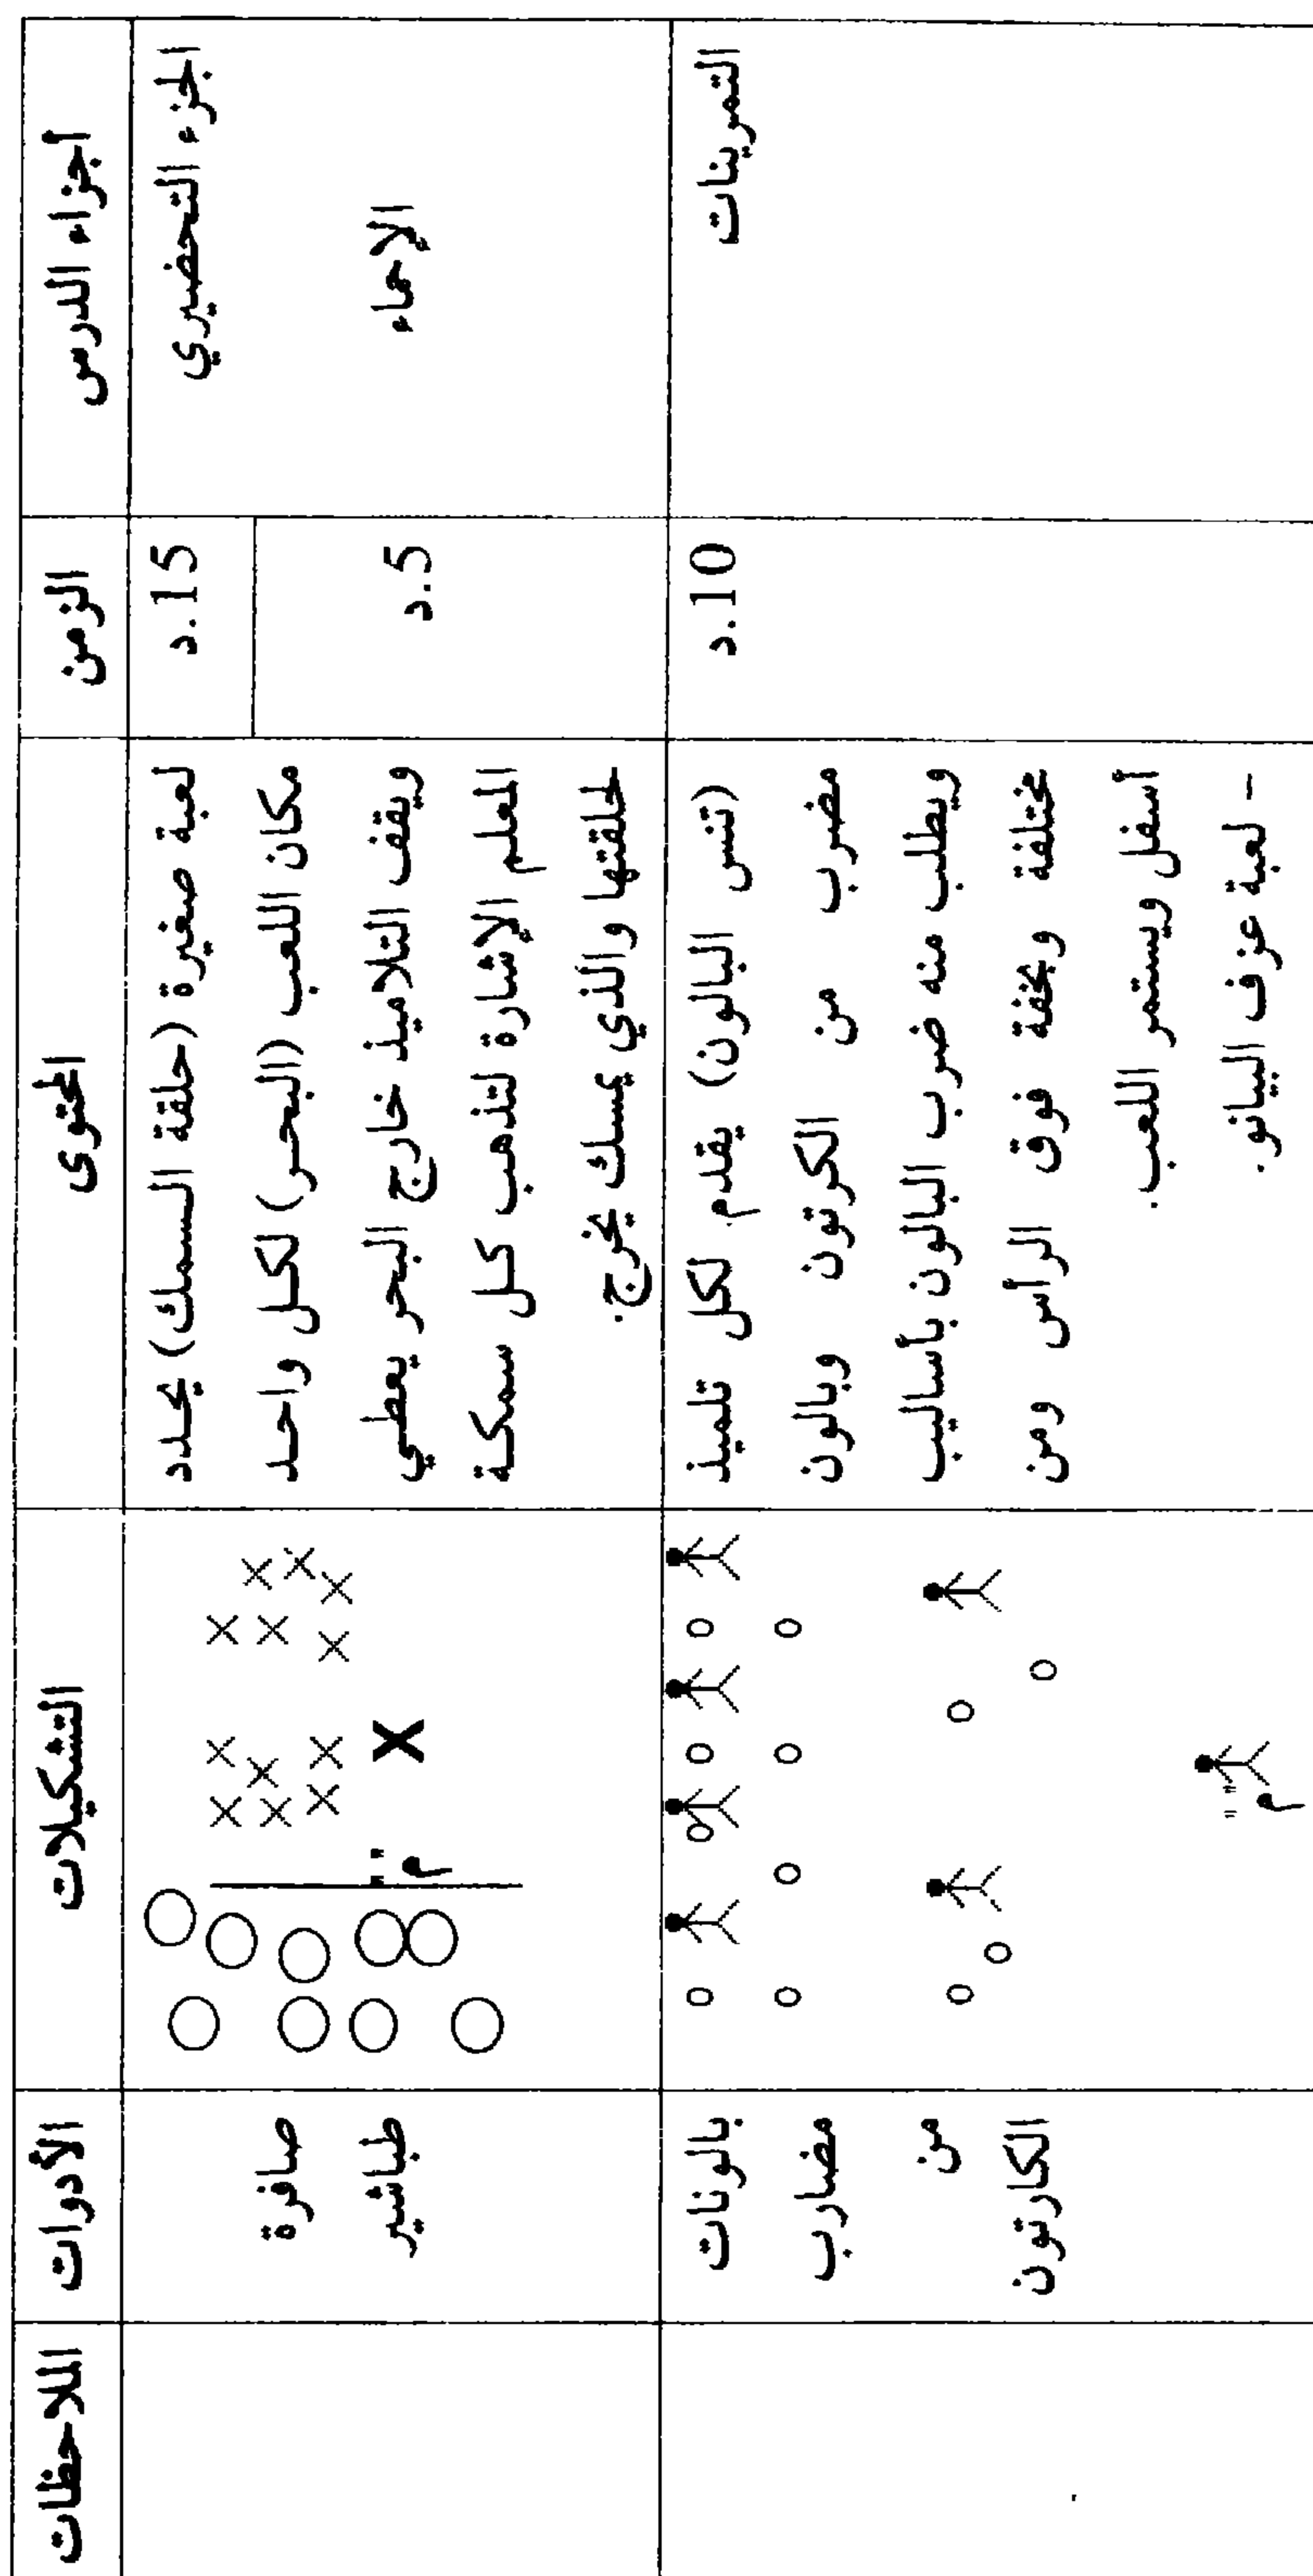 أجزاء الدرس
الزمن
المحتوى
التشكيلات
الأدوات
الملاحظات
الجزء التحضيري
الإحماء
15.د
5.د
لعبة صغيرة (حلقة السمك) يحدد
مكان اللعب (البحر) لكل واحد
ويقف التلاميذ خارج البحر يعطي
المعلم الإشارة لتذهب كل سمكة
لحلقتها والذي يمسك يخرج.
× × × × × × × × × × × ×
X
"م"
صافرة
طباشير
التمرينات
10.د
(تنس البالون) يقدم لكل تلميذ
مضرب من الكرتون وبالون
ويطلب منه ضرب البالون بأساليب
مختلفة وبخفة فوق الرأس ومن
أسفل ويستمر اللعب.
- لعبة عزف البيانو.
"م"
بالونات
مضارب
من
الكارتون